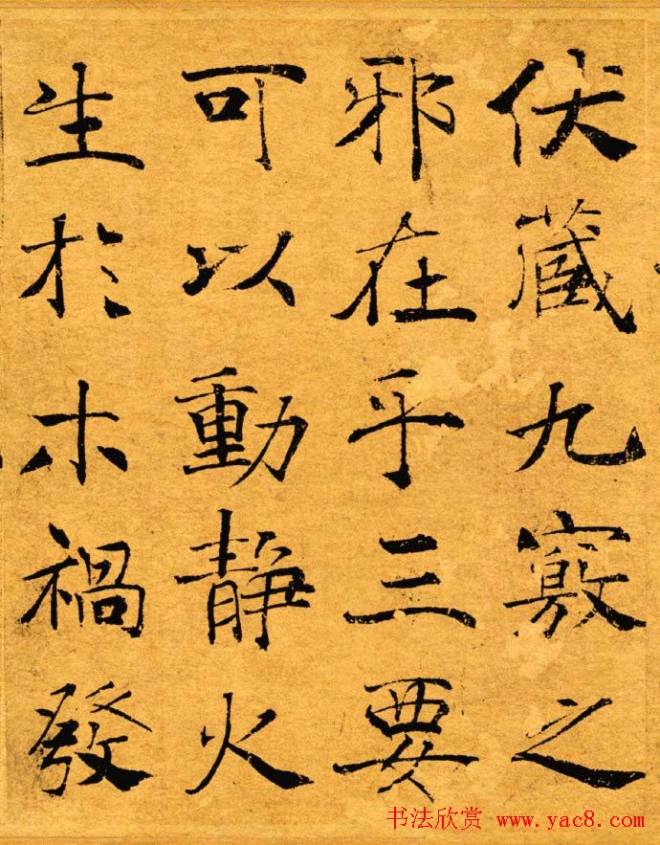 伏藏九竅之
邪在乎三要
可以動靜火
生於木禍發
书法欣赏 www.yac8.com